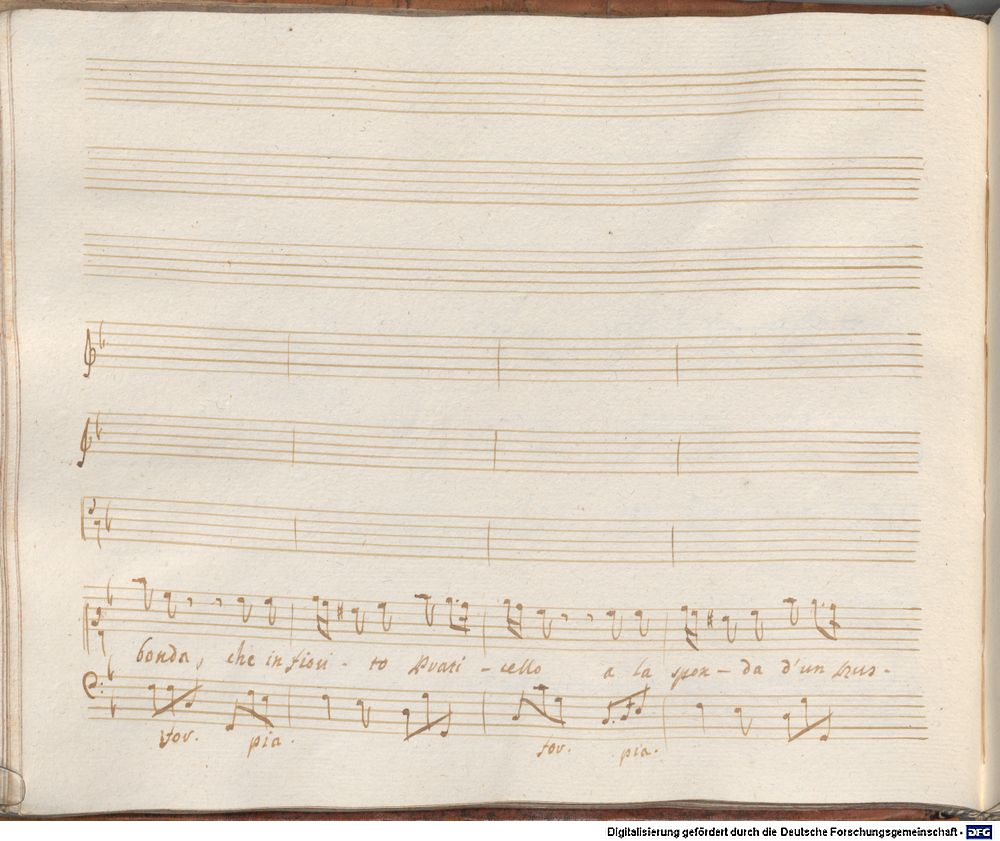 bonda, che in fiori - to Prati - cello a la spon - da d'un Rus -
for. pia. for. pia.
Digitalisierung gefördert durch die Deutsche Forschungsgemeinschaft - DFG